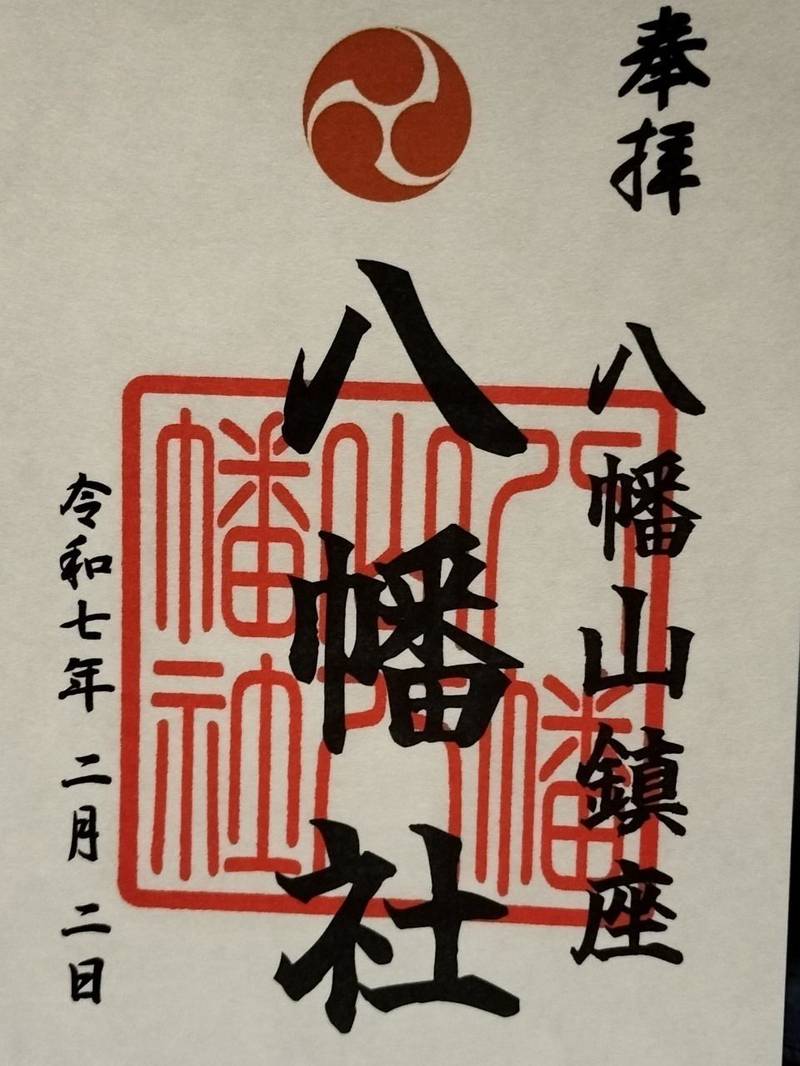 奉拝
八幡山鎮座
八幡社
八幡山八幡社
令和七年 二月 二日